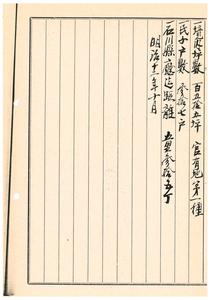 一境内坪数 百五拾五坪 官有地第一種
一氏子戸数 参拾七戸
一石川縣廳迄距離 五里参拾五丁
明治十三年十月